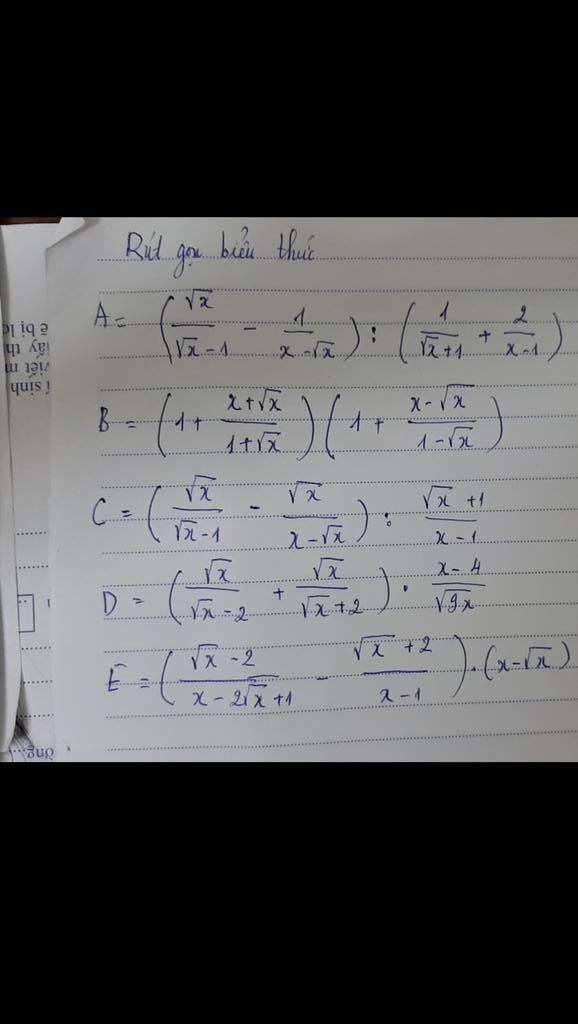 Rút gọn biểu thức
A = (√x/(√x - 1) - 1/(x - √x)) : (1/(√x + 1) + 2/(x - 1))
B = (1 + (x + √x)/(1 + √x)) (1 + (x - √x)/(1 - √x))
C = (√x/(√x - 1) - √x/(x - √x)) : (√x + 1)/(x - 1)
D = (√x/(√x - 2) + √x/(√x + 2)) . (x - 4)/√9x
E = ((√x - 2)/(x - 2√x + 1) - (√x + 2)/(x - 1)) . (x - √x)
ẽ bị lo
lấy th
viết m
í sinh
ông...